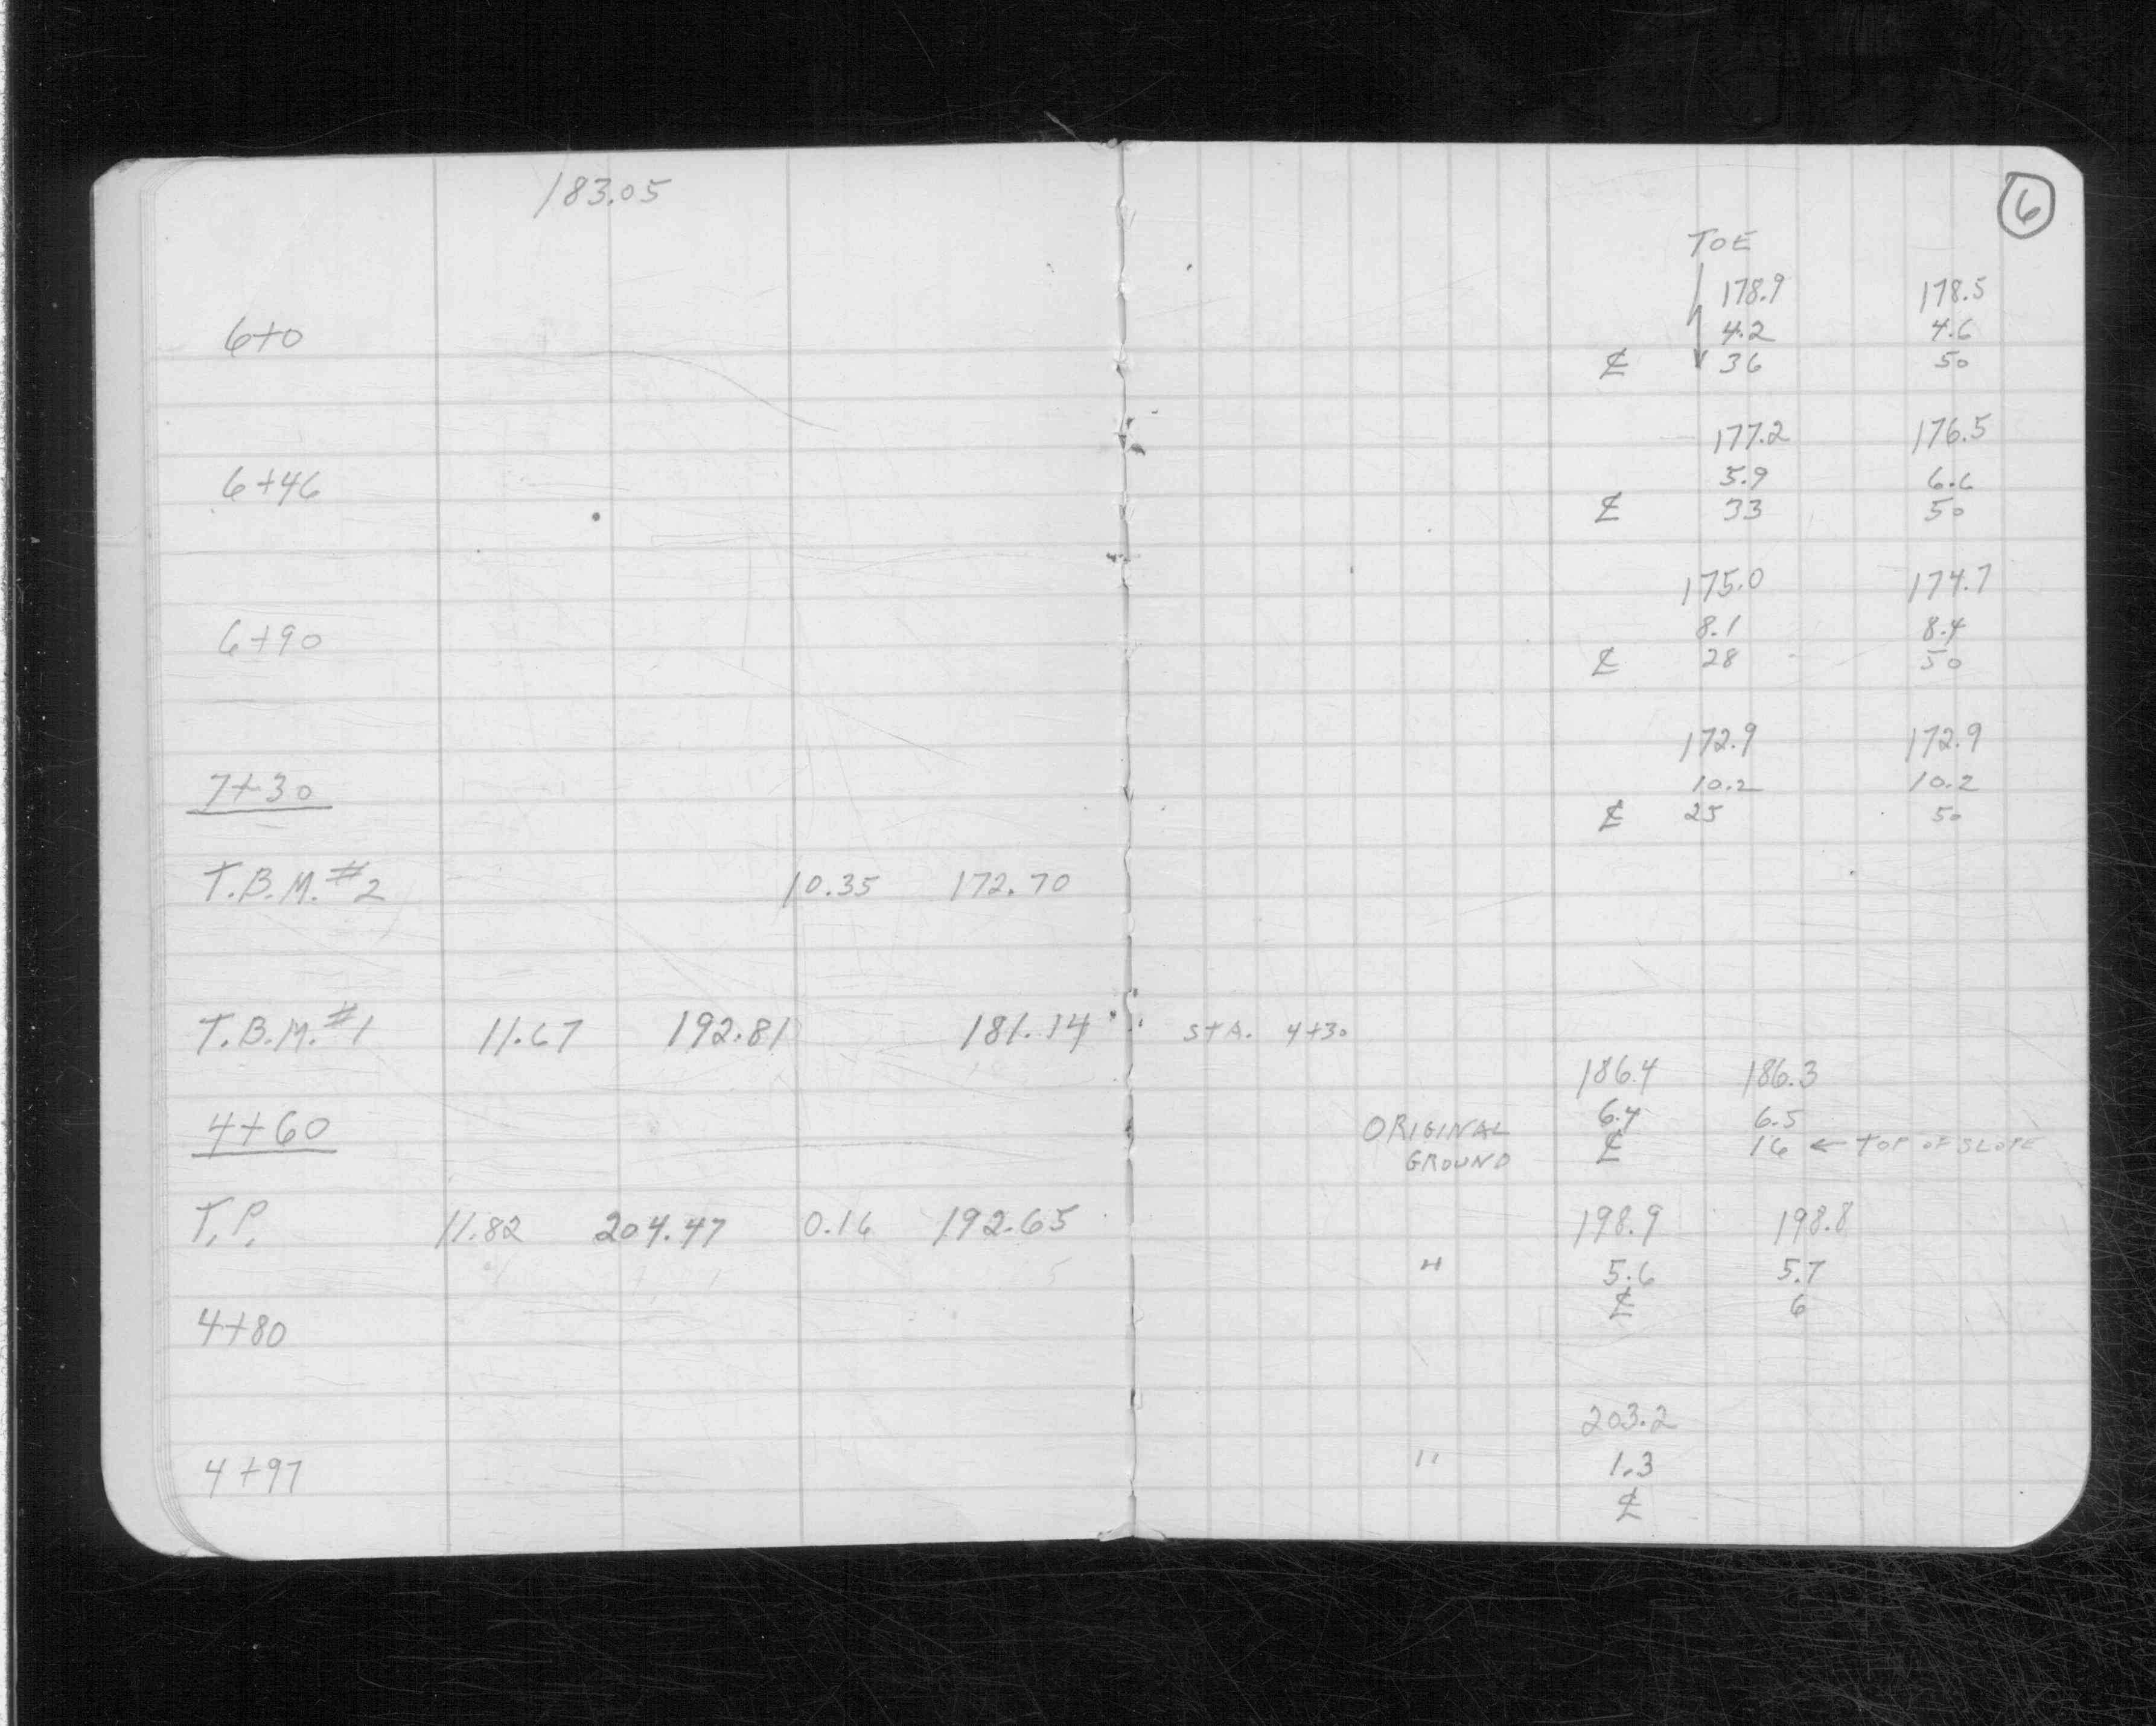 183.05
6+0
6+46
6+90
7+30
T.B.M. #2 10.35 172.70
T.B.M. #1 11.67 192.81 181.14
4+60
T.P. 11.82 204.47 0.16 192.65
4+80
4+97
6
TOE
178.9 178.5
4.2 4.6
℄ 36 50
177.2 176.5
5.9 6.6
℄ 33 50
175.0 174.7
8.1 8.4
℄ 28 50
172.9 172.9
10.2 10.2
℄ 25 50
STA. 4+30
186.4 186.3
ORIGINAL 6.4 6.5
GROUND ℄ 16 ← TOP OF SLOPE
198.9 198.8
" 5.6 5.7
℄ 6
203.2
" 1.3
℄